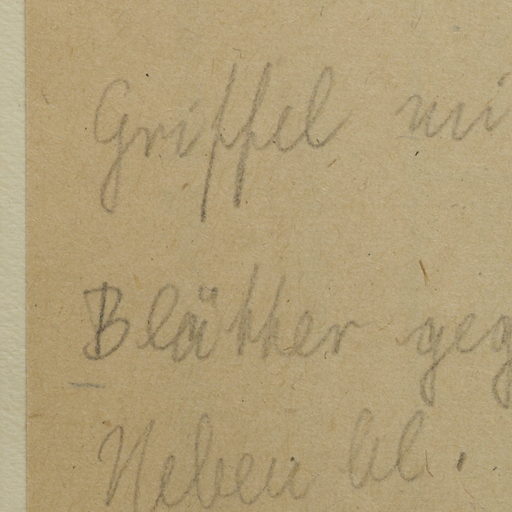 Griffel mi
Blätter geg
Neben bl.